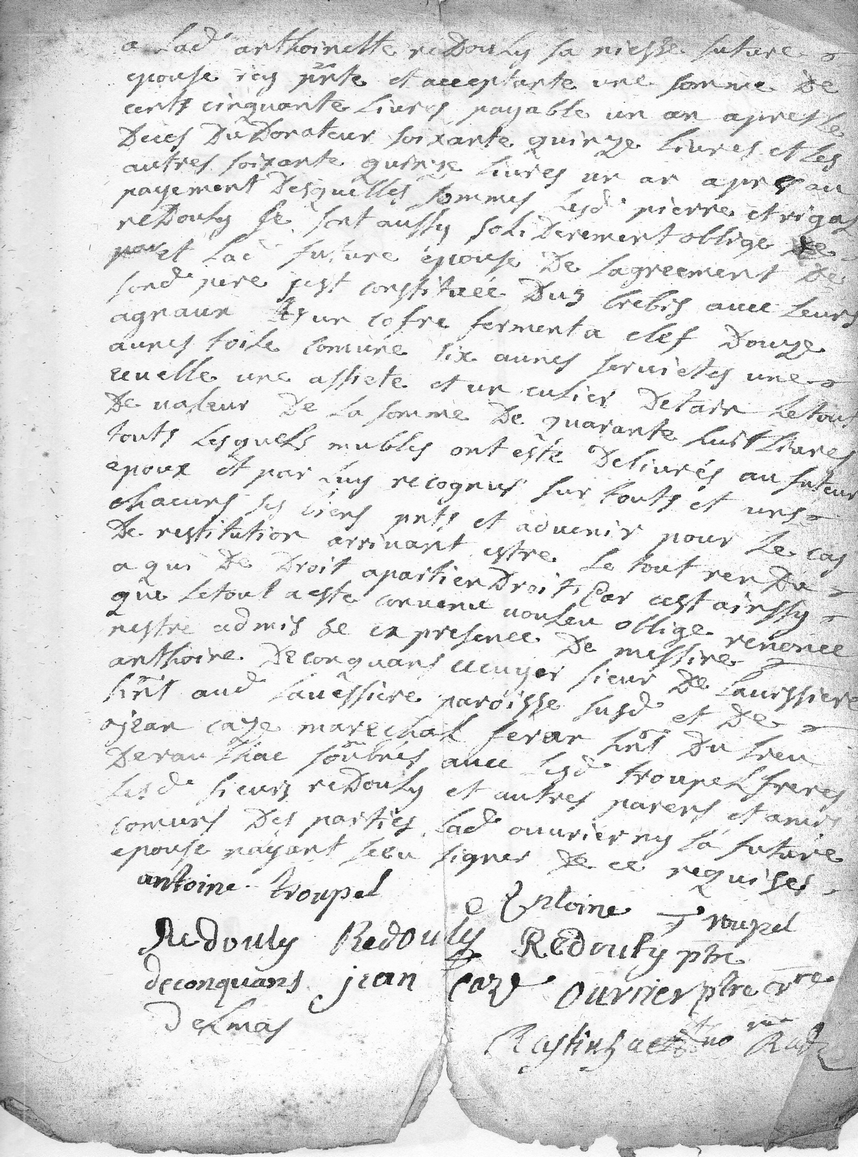 a lad anthoinette redouly sa niesse future
epouse icy pnte et acceptante une somme de
cents cinquante livres payable un an apres le
deces du donateur soixante quinze livres et les
autres soixante quinze livres un an apres au
payement desquelles sommes lesd pierre et rigal
redouly se sont aussy soliderement oblige
et lad future epouse de lagreement de
sond pere sest constituée brebis avec leurs
agnaux un cofre ferment a clef douze
aunes toile comune six aunes servietes une
une assiete et un culier detain le tout
de valeur de la somme de quarante huit livres
touts lesquels mubles ont este delivrés au futeur
epoux et par luy recognus sur touts et uns
chacuns ses biens pnts et advenir pour le cas
de restitution arrivant estre le tout rendu
a qui de droit apartiendroit Car cest ainssy
que le tout a este convenu voulu oblige renonce
nestre admis de en presence de messire
anthoine deconquans ecuyer sieur de
hnt aud paroisse susd et de
jean caze marechal feran hnt du lieu
de soubnés avec lesd troupel freres
lesd sieurs redouly et autres parens et amis
comuns des parties lad ouvrier ny la future
epouse nayant sceu signer de ce requises
antoine troupel
Entoine Troupel
Redouly Redouly Redouly ptre
deconquans jean Caze Ouvrier ptre
Delmas